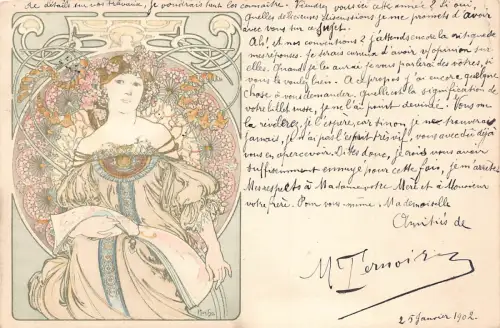 de détails sur vos travaux, je voudrais tant les connaître. Viendrez vous ici cette année ? Si oui,
Quelles délicieuses discussions je me promets d'avoir
avec vous sur ce sujet.
Ah! et nos conventions ? J'attends encore la critique de
mes réponses. Je serais curieux d'avoir votre opinion sur
elles. Quand je les aurai je vous parlerai des vôtres, si
vous le voulez bien. A propos j'ai encore quelque
chose à vous demander. Quelle est la signification de
votre billet, je ne l'ai point devinée. Vous me
la révélerez, je l'espère, car sinon je ne trouverai
jamais, je n'ai pas l'esprit très vif, vous avez dû déjà
vous en apercevoir. Dites donc, je crois vous avoir
suffisamment ennuyé pour cette fois, je m'arrête.
Mes respects à Madame votre Mère et à Monsieur
votre frère. Pour vous-même Mademoiselle
Amitiés de
M Ternois
25 Janvier 1902.
Mucha